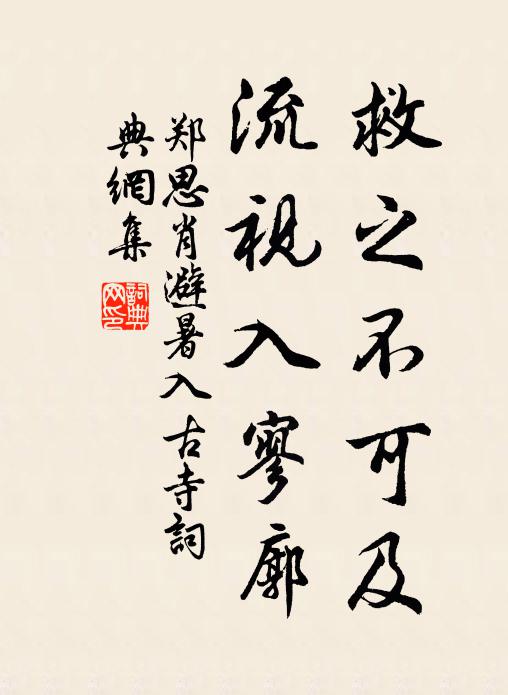 救之不可及
流视入寥廓
郑思肖避暑入古寺词
典網集
詞典
网印